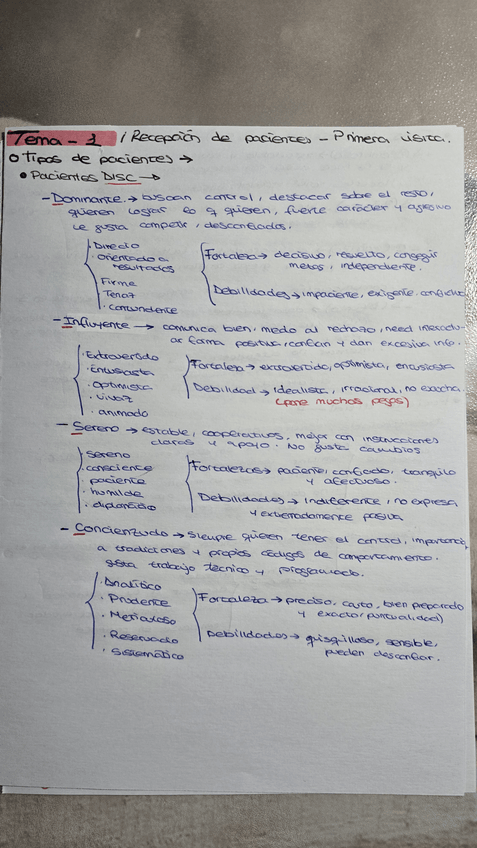 Tema - 1 / Recepción de pacientes - Primera visita.
o Tipos de pacientes →
• Pacientes DISC →
- Dominante → buscan control, destacar sobre el resto,
quieren lograr lo q quieren, fuerte carácter y agresivo
le gusta competir, desconfiados.
· Directo
· orientado a
resultados
· Firme
· Tenaz
· contundente
Fortaleza → decisivo, resuelto, conseguir
metas, independiente.
Debilidades → impaciente, exigente, conflicto
- Influyente → comunica bien, miedo al rechazo, need
ar forma positiva, confían y dan excesiva info.
· Extrovertido
· Entusiasta
· Optimista
· vivaz
· animado
Fortaleza → extrovertido, optimista, entusiasta
Debilidad → idealista, irracional, no escucha
(pone muchos pegos)
- Sereno → estable, cooperativos, mejor con instrucciones
claras y apoyo. No gusta cambios
· Sereno
· consciente
· paciente
· humilde
· diplomático
Fortalezas → paciente, confiado, tranquilo
y afectuoso.
Debilidades → Indiferente, no expresa
y extremadamente pasiva
- Concienzudo → siempre quieren tener el control, importancia
a tradiciones y propios códigos de comportamiento.
gusta trabajo técnico y programado.
· Analítico
· Prudente
· Meticuloso
· Reservado
· Sistemático
Fortaleza → preciso, cauto, bien preparado
y exacto (puntualidad)
Debilidades → quisquilloso, sensible,
pueden desconfiar.